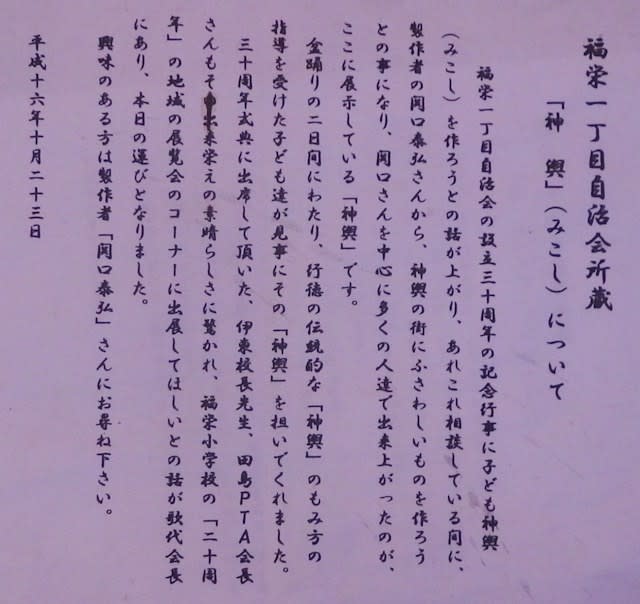 福栄一丁目自治会所蔵
「神　輿」（みこし）について
福栄一丁目自治会の設立三十周年の記念行事に子ども神輿
（みこし）を作ろうとの話が上がり、あれこれ相談している間に、
製作者の関口泰弘さんから、神輿の街にふさわしいものを作ろう
との事になり、関口さんを中心に多くの人達で出来上がったのが、
ここに展示している「神輿」です。
盆踊りの二日間にわたり、行徳の伝統的な「神輿」のもみ方の
指導を受けた子ども達が見事にその「神輿」を担いでくれました。
三十周年式典に出席して頂いた、伊東校長先生、田島ＰＴＡ会長
さんもその出来栄えの素晴らしさに驚かれ、福栄小学校の「二十周
年」の地域の展覧会のコーナーに出展してほしいとの話が歌代会長
にあり、本日の運びとなりました。
興味のある方は製作者「関口泰弘」さんにお尋ね下さい。
平成十六年十月二十三日